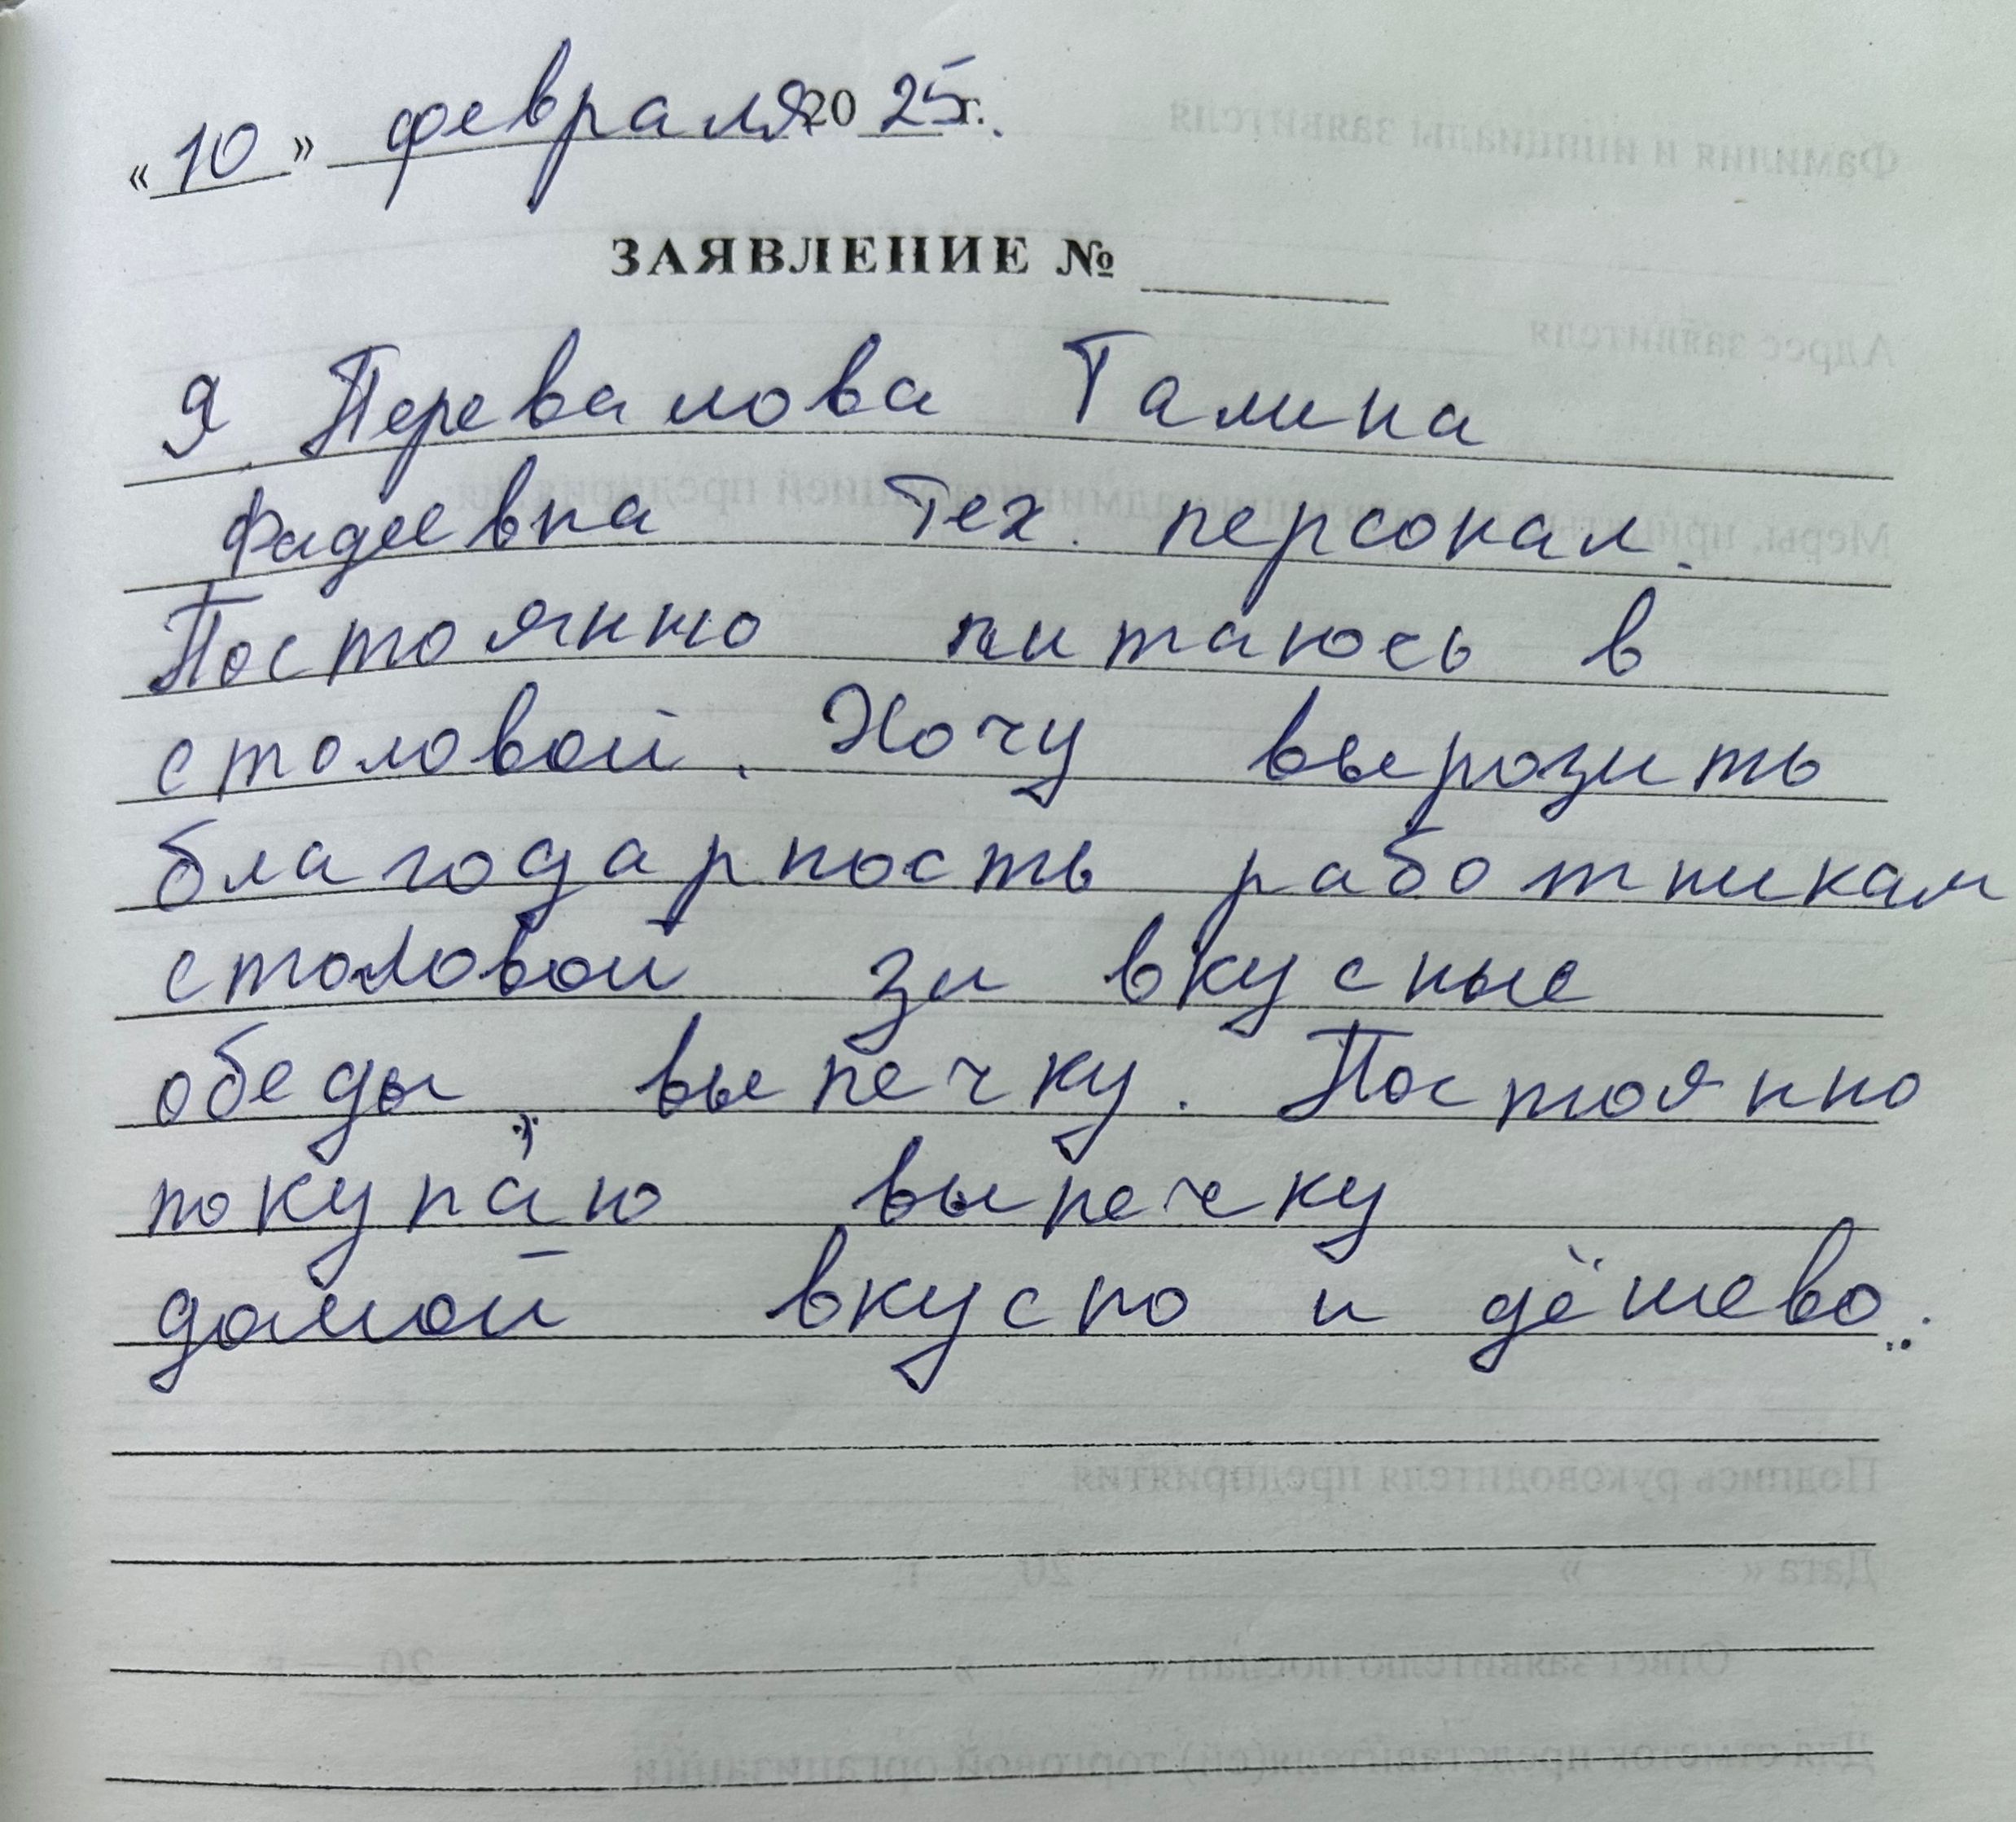 «10» февраля 2025г.
ЗАЯВЛЕНИЕ №
Я Перевалова Галина
Фадеевна Тех. персонал.
Постоянно питаюсь в
столовой. Хочу выразить
благодарность работникам
столовой за вкусные
обеды, выпечку. Постоянно
покупаю выпечку
домой вкусно и дёшево.